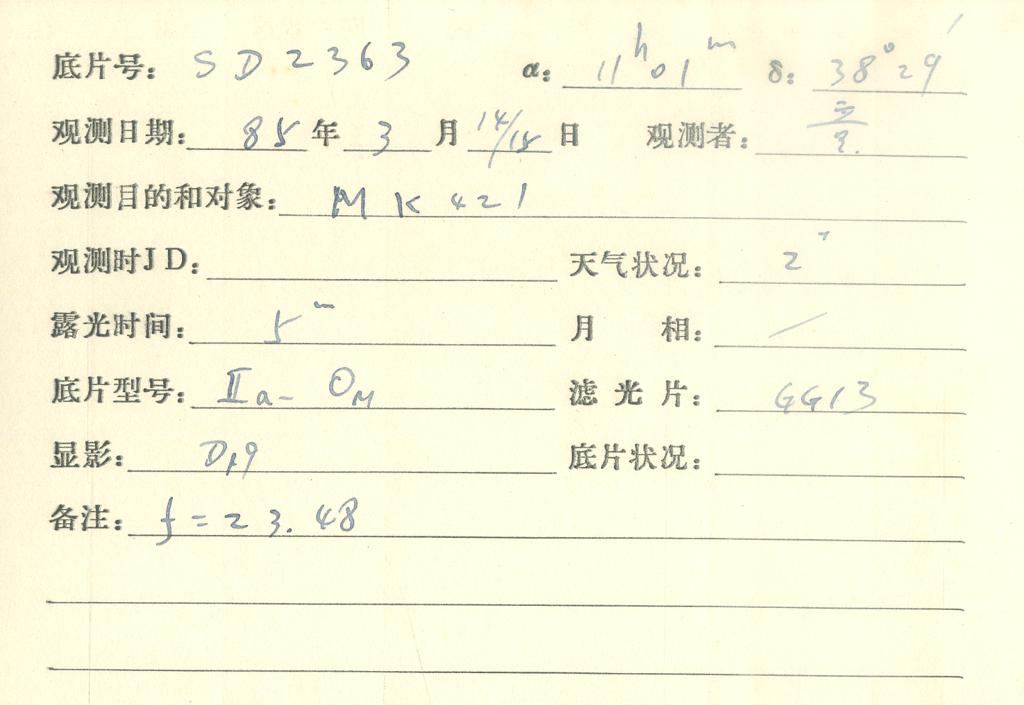 底片号: SD2363 α: 11ʰ01ᵐ δ: 38°29′
观测日期: 85年3月14/15日 观测者:
观测目的和对象: MK421
观测时JD: 天气状况: 2
露光时间: 5ᵐ 月相: /
底片型号: Ⅱa-OM 滤光片: GG13
显影: D19 底片状况:
备注: f=23.48